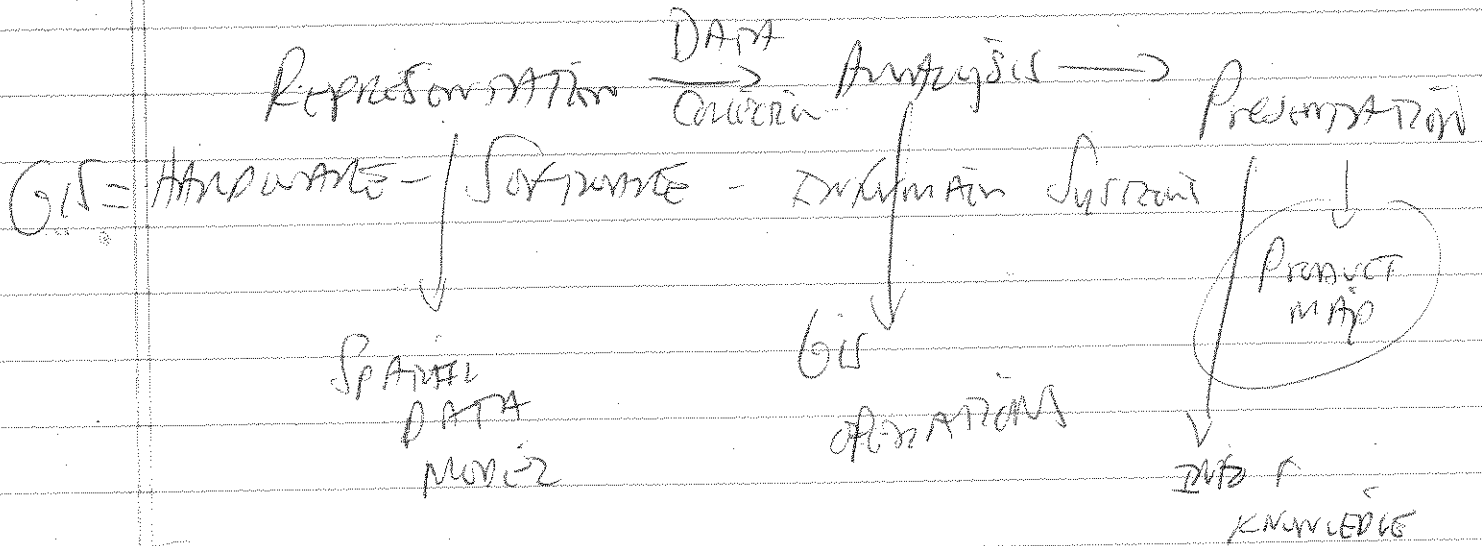 DATA
REPRESENTATION → ANALYSIS → PRESENTATION
GIS = HARDWARE - SOFTWARE - INFORMATION SYSTEMS
PRODUCT
MAP
SPATIAL
DATA
MODEL
GIS
OPERATIONS
INFO +
KNOWLEDGE